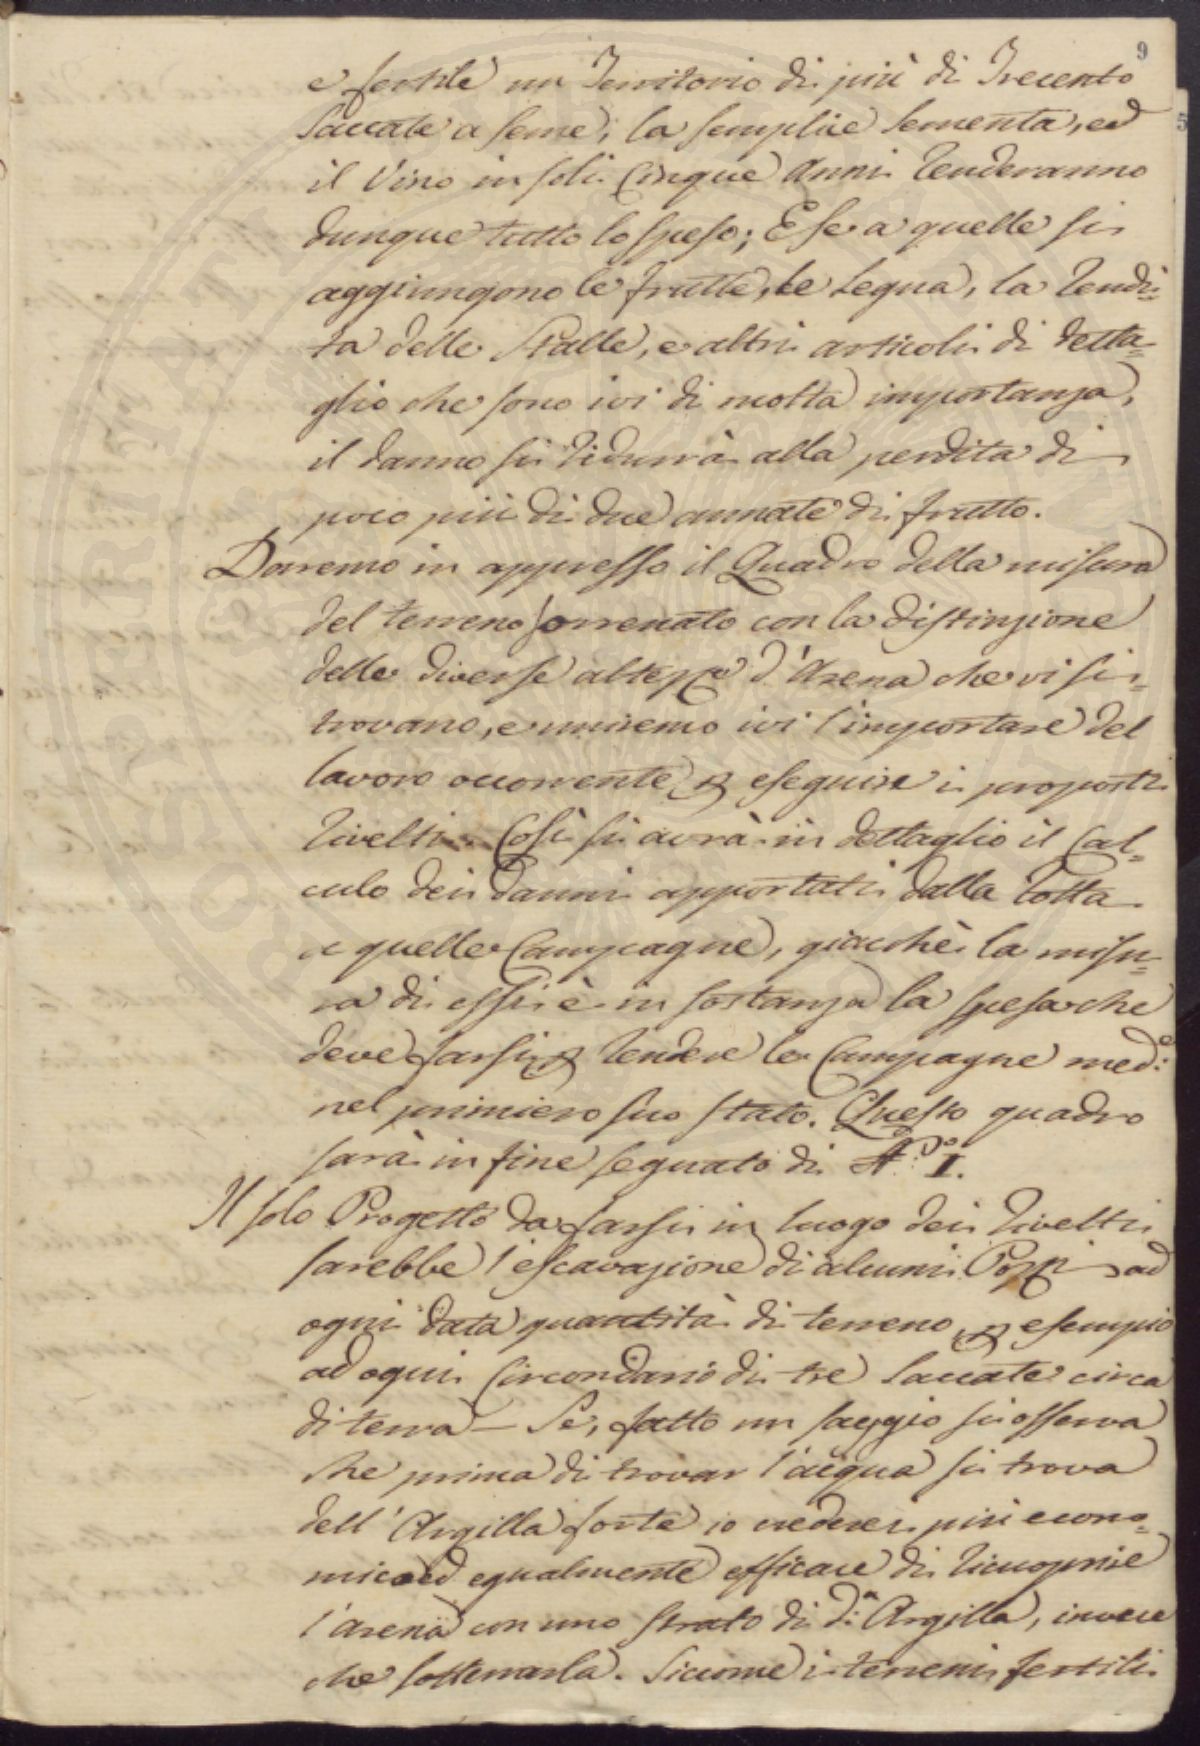 9
5
e fertile un Territorio di più di Trecento
Saccate a seme; la semplice sementa, ed
il Vino in soli Cinque Anni renderanno
dunque tutto lo speso; E se a quelle si
aggiungono le frutte, le Legna, la rendi=
ta delle Stalle, e altri articoli di detta=
glio che sono ivi di molta importanza,
il danno si ridurrà alla perdita di
poco più di due annate di frutto.
Daremo in appresso il Quadro della misura
del terreno arrenato con la distinzione
delle diverse altezze d'Arena che vi si
trovano, e uniremo ivi l'importare del
lavoro occorrente p eseguire i proposti
rivelti. Così si avrà in dettaglio il Cal=
culo dei danni apportati dalla rotta
a quelle Campagne, giacchè la misu=
ra di essi è in sostanza la spesa che
deve farsi p rendere le Campagne med:e
nel primiero suo stato. Questo quadro
sarà in fine segnato di N.o I.
Il solo Progetto da farsi in luogo dei rivelti
sarebbe l'escavazione di alcuni Pozzi ad
ogni data quantità di terreno, p esempio
ad ogni Circondario di tre Saccate circa
di terra — Se, fatto un saggio si osserva
che prima di trovar l'acqua si trova
dell'Argilla forte io crederei più econo=
mico ed egualmente efficace di ricuoprire
l'arena con uno strato di d:a Argilla, invece
che sotterrarla. Siccome i terreni fertili